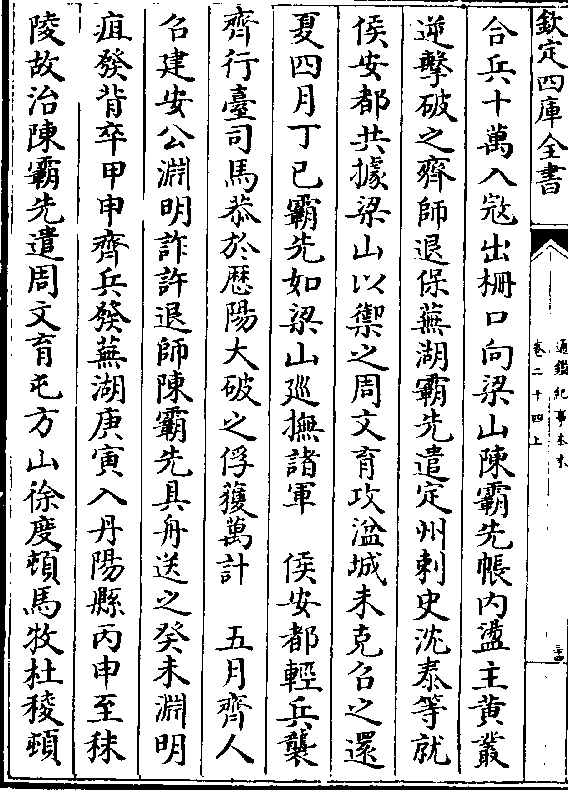 欽定四庫全書
通鑑紀事本末
卷二十四上
三十四
合兵十萬入寇出柵口向梁山陳霸先帳內盪主黄叢
逆擊破之齊師退保蕪湖霸先遣定州刺史沈泰等就
侯安都共據梁山以禦之周文育攻湓城未克召之還
夏四月丁巳霸先如梁山廵撫諸軍　侯安都輕兵襲
齊行臺司馬恭於歷陽大破之俘獲萬計　五月齊人
召建安公淵明詐許退師陳霸先具舟送之癸未淵明
疽發背卒甲申齊兵發蕪湖庚寅入丹陽縣丙申至秣
陵故治陳霸先遣周文育屯方山徐度頓馬牧杜稜頓